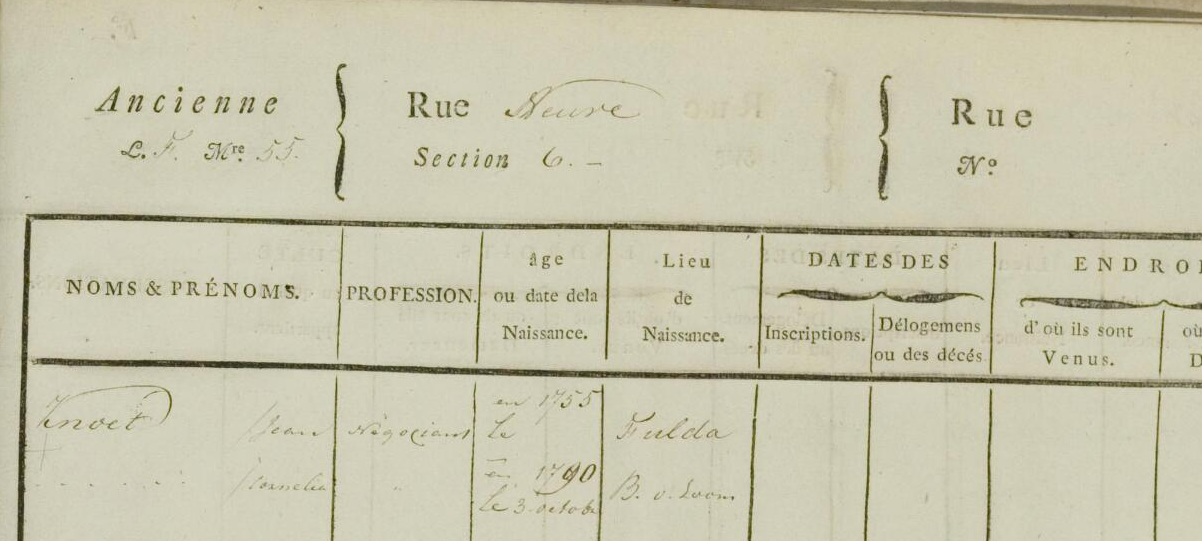 Ancienne
L. F. Mre. 55.
Rue Neuve
Section 6. –
Rue
N.º
NOMS & PRÉNOMS.
PROFESSION.
âge
ou date dela
Naissance.
Lieu
de
Naissance.
DATES DES
Inscriptions.
Délogemens
ou des décés
ENDROI
d'où ils sont
Venus.
où
D
Knoet Jean Négociant en 1755 le Fulda
. . . . . Cornelia " en 1790 le 3 octobr B. v. Loon